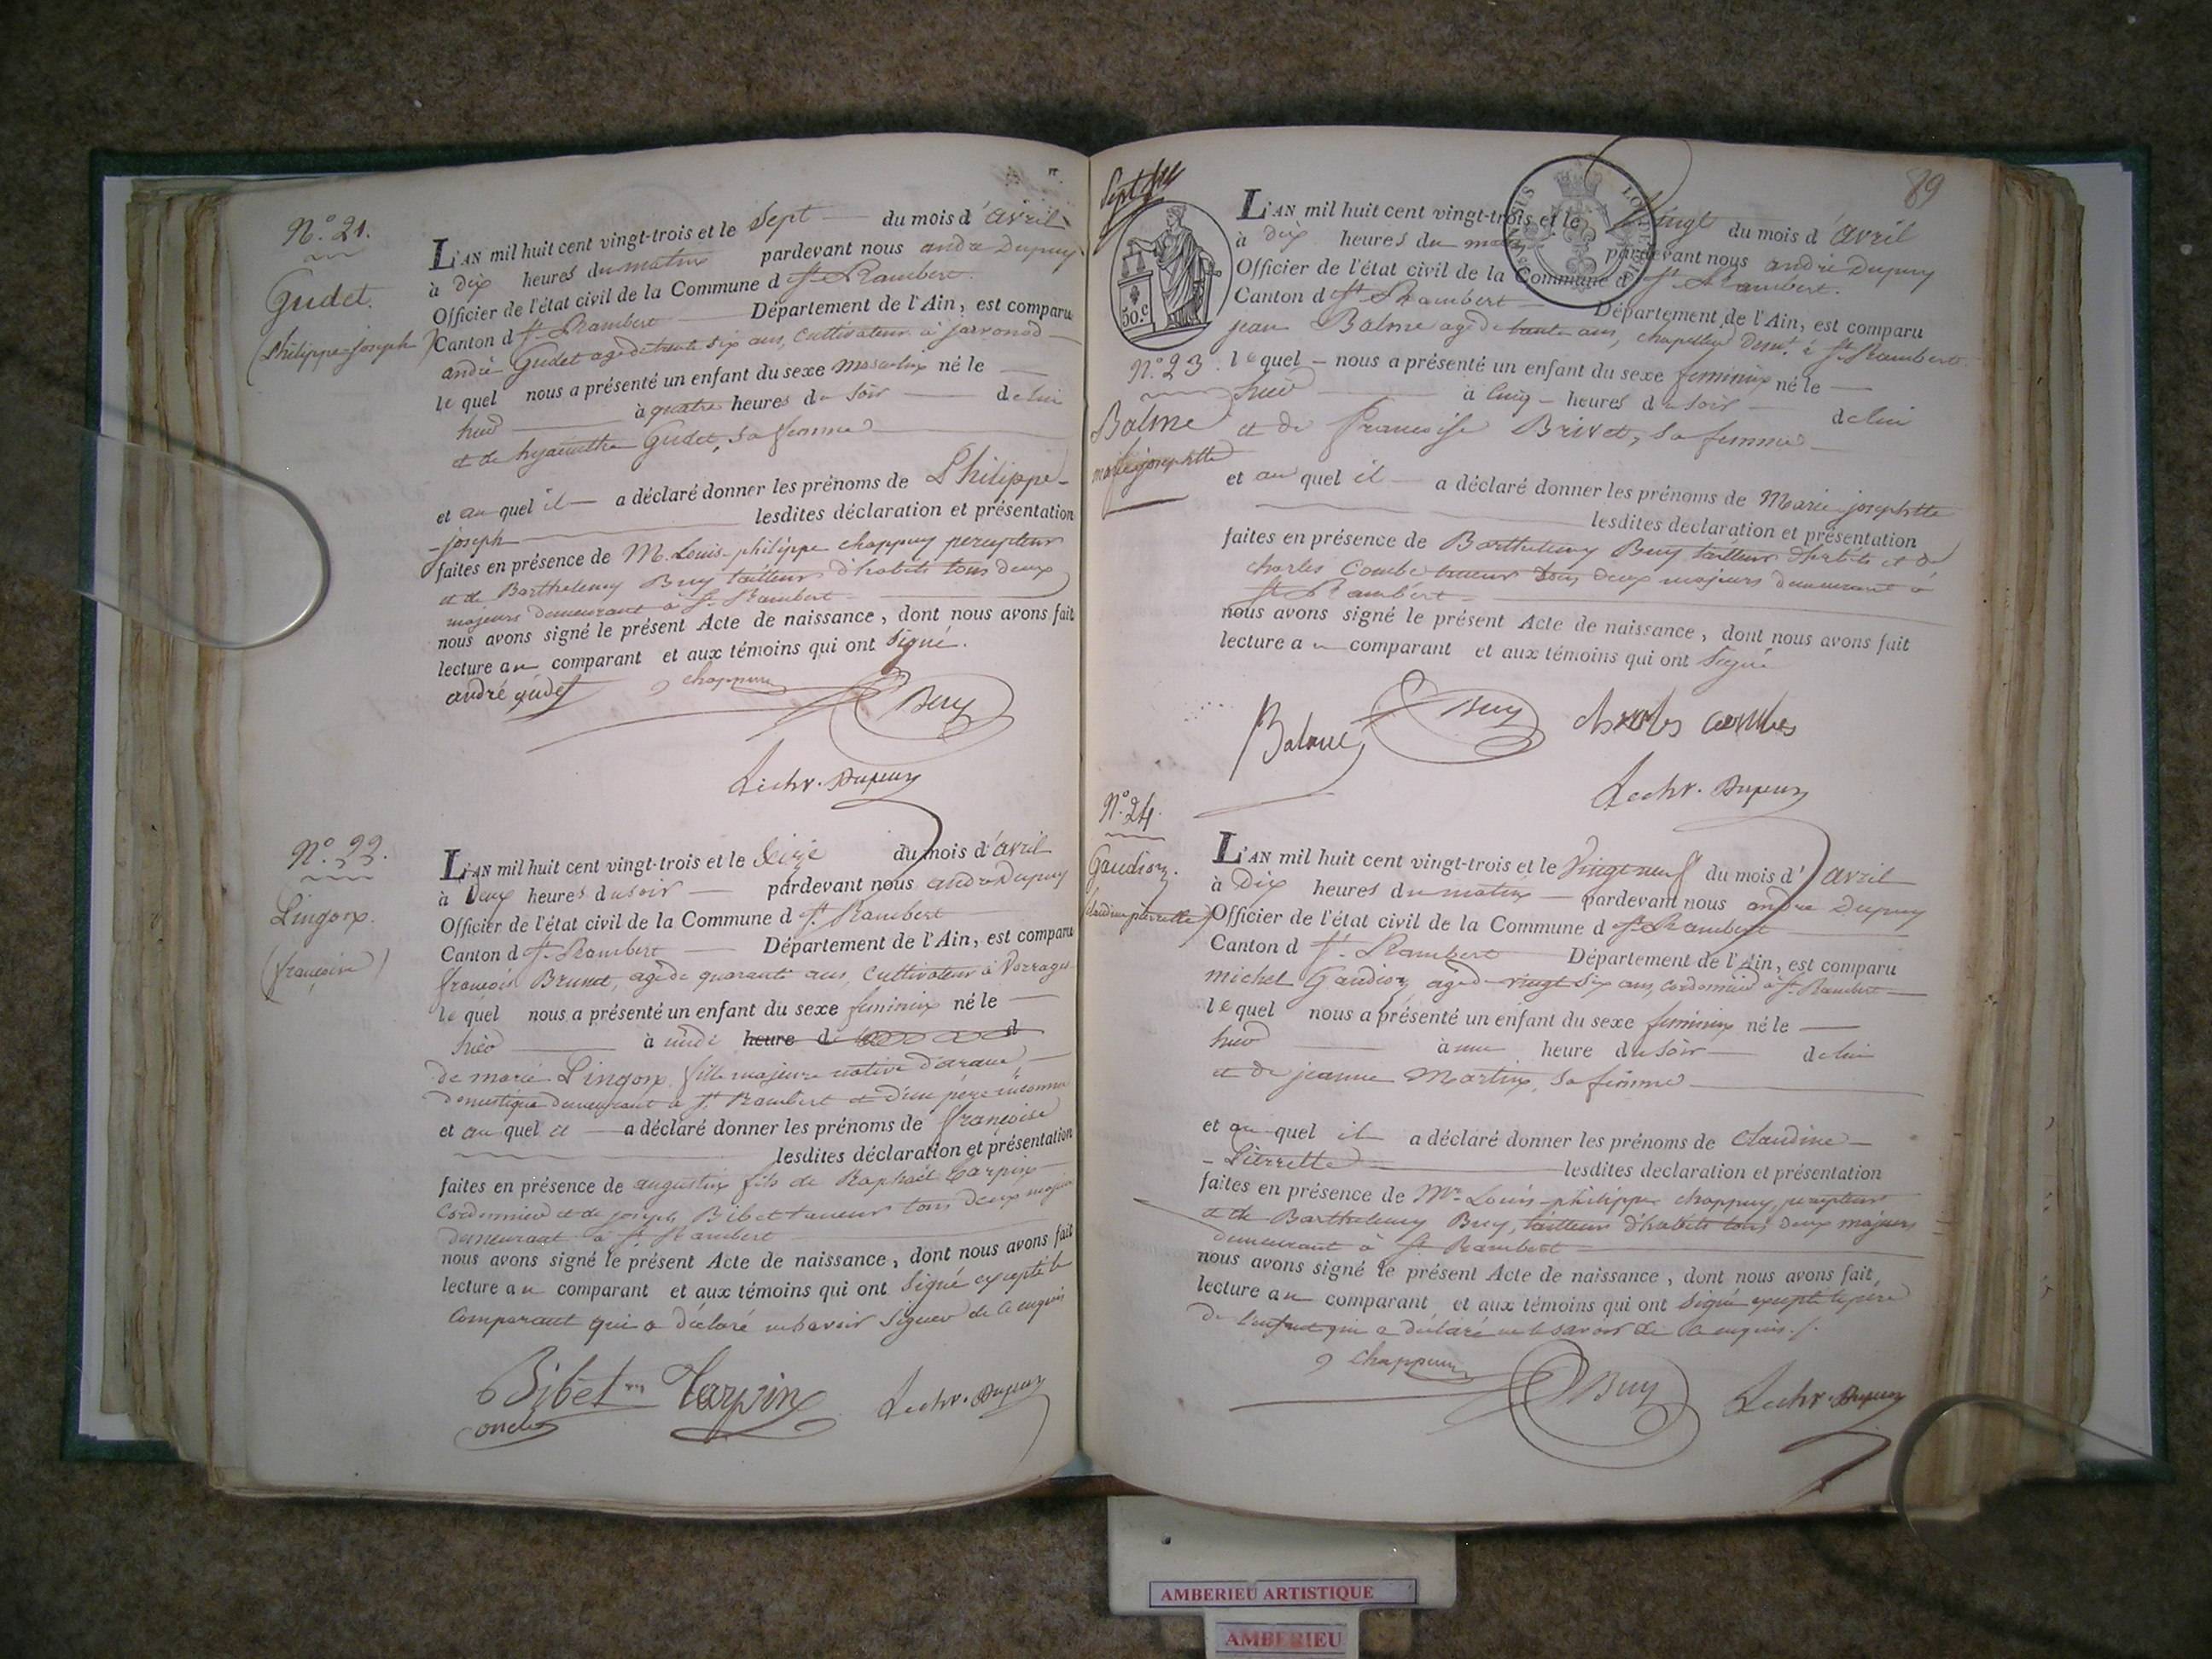 N.° 21.
Gudet.
(Philippe-joseph)
L'AN mil huit cent vingt-trois et le Sept du mois d'avril
à dix heures du matin pardevant nous andré Dupuy
Officier de l'état civil de la Commune d St Rambert
Canton d St Rambert Département de l'Ain, est comparu
andré Gudet agé de trente six ans, cultivateur à
le quel nous a présenté un enfant du sexe masculin né le
hier à quatre heures du soir de lui
et de hyacinthe Gudet, sa femme
et au quel il a déclaré donner les prénoms de Philippe-
-joseph lesdites déclaration et présentation
faites en présence de M. Louis-philippe chappuy percepteur
et de Barthelemy Buy tailleur d'habits tous deux
majeurs demeurant à St Rambert
nous avons signé le présent Acte de naissance, dont nous avons fait
lecture au comparant et aux témoins qui ont signé.
andré gudet chappuy Buy
Lechr. Dupuy
N.° 22.
Pingon.
(françoise)
L'AN mil huit cent vingt-trois et le Seize du mois d'avril
à Deux heures du soir pardevant nous andré Dupuy
Officier de l'état civil de la Commune d St Rambert
Canton d St Rambert Département de l'Ain, est comparu
françois Brunet, agé de quarante ans, cultivateur à
le quel nous a présenté un enfant du sexe feminin né le
hier à midi heure d
de marie Pingon fille majeure native d'arane,
domestique demeurant à St Rambert et d'un père inconnu
et au quel il a déclaré donner les prénoms de françoise
lesdites déclaration et présentation
faites en présence de augustin fils de Raphaël Tarpin
cordonnier et de joseph Bibet taneur tous deux majeurs
demeurant à St Rambert
nous avons signé le présent Acte de naissance, dont nous avons fait
lecture au comparant et aux témoins qui ont signé excepté le
comparant qui a déclaré ne savoir signer de ce enquis
Bibet Tarpin Lechr. Dupuy
oncle
89
50 c
L'AN mil huit cent vingt-trois et le Vingt du mois d'avril
à dix heures du matin pardevant nous andré Dupuy
Officier de l'état civil de la Commune d St Rambert.
Canton d St Rambert Département de l'Ain, est comparu
jean Balme agé de trente ans, chapelier demt. à St Rambert
N.° 23.
Balme
marie josephtte
le quel nous a présenté un enfant du sexe feminin né le
hier à cinq heures du soir de lui
et de françoise Brivet, sa femme
et au quel il a déclaré donner les prénoms de Marie josephtte
lesdites déclaration et présentation
faites en présence de Barthelemy Buy tailleur d'habits et de
charles Combe taneur tous deux majeurs demeurant à
St Rambert
nous avons signé le présent Acte de naissance, dont nous avons fait
lecture au comparant et aux témoins qui ont signé
Balme Buy charles combes
Lechr. Dupuy
N.° 24.
Gaudion.
(Claudine pierrette)
L'AN mil huit cent vingt-trois et le Vingt neuf du mois d'avril
à Dix heures du matin pardevant nous andré Dupuy
Officier de l'état civil de la Commune d St Rambert
Canton d St Rambert Département de l'Ain, est comparu
michel Gaudion agé de vingt six ans, cordonnier à St Rambert
le quel nous a présenté un enfant du sexe feminin né le
hier à une heure du soir de lui
et de jeanne Martin, sa femme
et au quel il a déclaré donner les prénoms de Claudine-
-Pierrette lesdites declaration et présentation
faites en présence de Mr. Louis-philippe chappuy, percepteur
et de Barthelemy Buy, tailleur d'habits tous deux majeurs
demeurant à St Rambert
nous avons signé le présent Acte de naissance, dont nous avons fait
lecture au comparant et aux témoins qui ont signé excepté le père
de l'enfant qui a déclaré ne le savoir de ce enquis ./.
chappuy Buy Lechr. Dupuy
AMBERIEU ARTISTIQUE
AMBERIEU